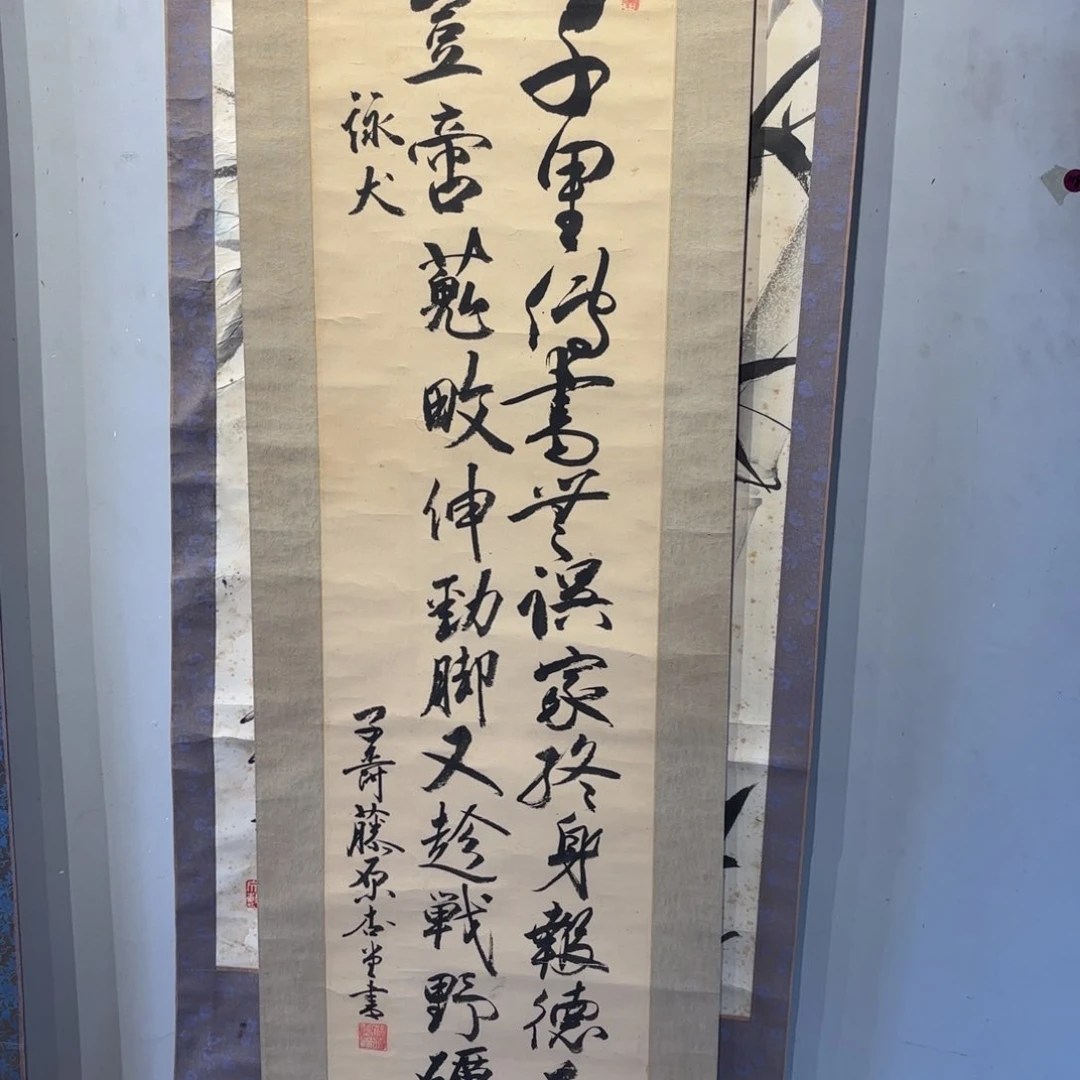 千里傳書無誤家終身報德
豈啻蒐畋伸勁脚又趁戦野
詠犬
子壽藤原杏堂書